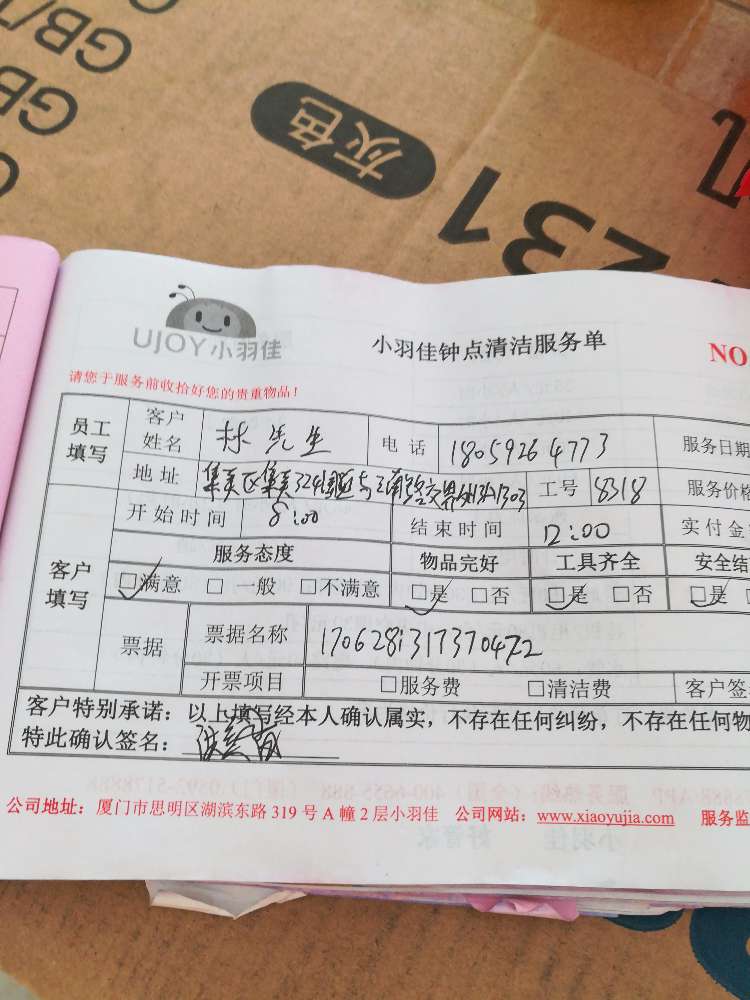 GB/
GB/T
GB
GB
灰色
231
UJOY小羽佳
小羽佳钟点清洁服务单
NO
请您于服务前收拾好您的贵重物品！
员工填写 客户姓名 林先生 电话 18059264773 服务日期
地址 集美区集美324国道与 交界 1303 工号 8318 服务价格
开始时间 8:00 结束时间 12:00 实付金
客户填写 服务态度 物品完好 工具齐全 安全结
□满意 □一般 □不满意 □是 □否 □是 □否 □是
票据 票据名称 1706281317370472
开票项目 □服务费 □清洁费 客户签
客户特别承诺：以上填写经本人确认属实，不存在任何纠纷，不存在任何物
特此确认签名：
公司地址：厦门市思明区湖滨东路 319 号 A 幢 2 层小羽佳 公司网站：www.xiaoyujia.com 服务监